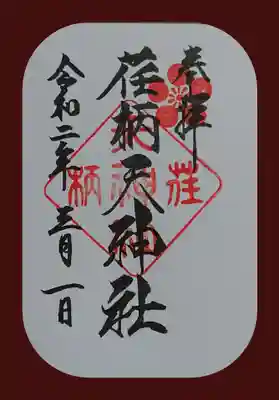 奉拝
荏柄天神社
令和二年三月一日
荏
柄